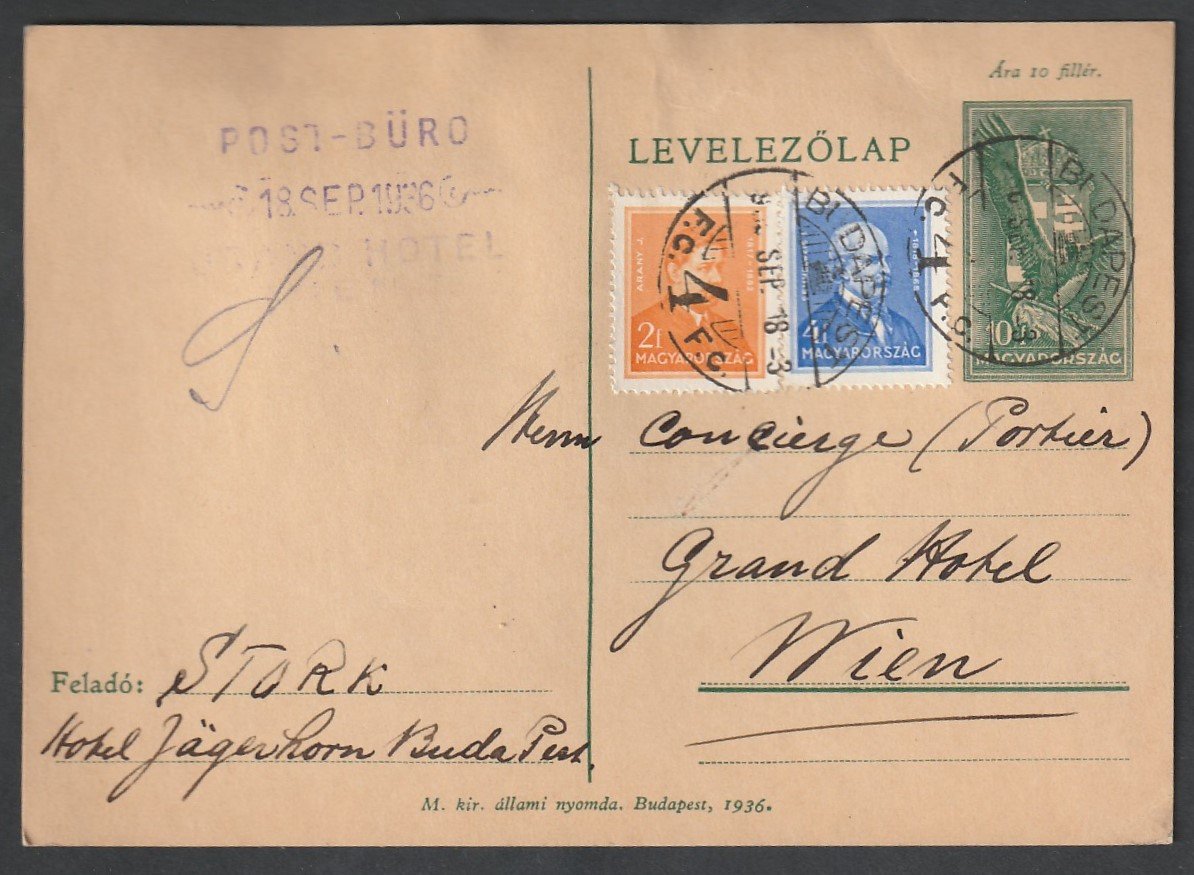 Ára 10 fillér.
POST-BÜRO
18 SEP. 1936
HOTEL
LEVELEZŐLAP
ARANY J.
1817-1882
2f
MAGYARORSZÁG
4f
MAGYARORSZÁG
10f
MAGYARORSZÁG
BUDAPEST
SEP. 18
F.C. 4 F.C.
BUDAPEST
18
4 F.C.
Herrn Concierge (Portier)
Grand Hotel
Wien
Feladó: STORK
Hotel Jägerhorn BudaPest.
M. kir. állami nyomda. Budapest, 1936.